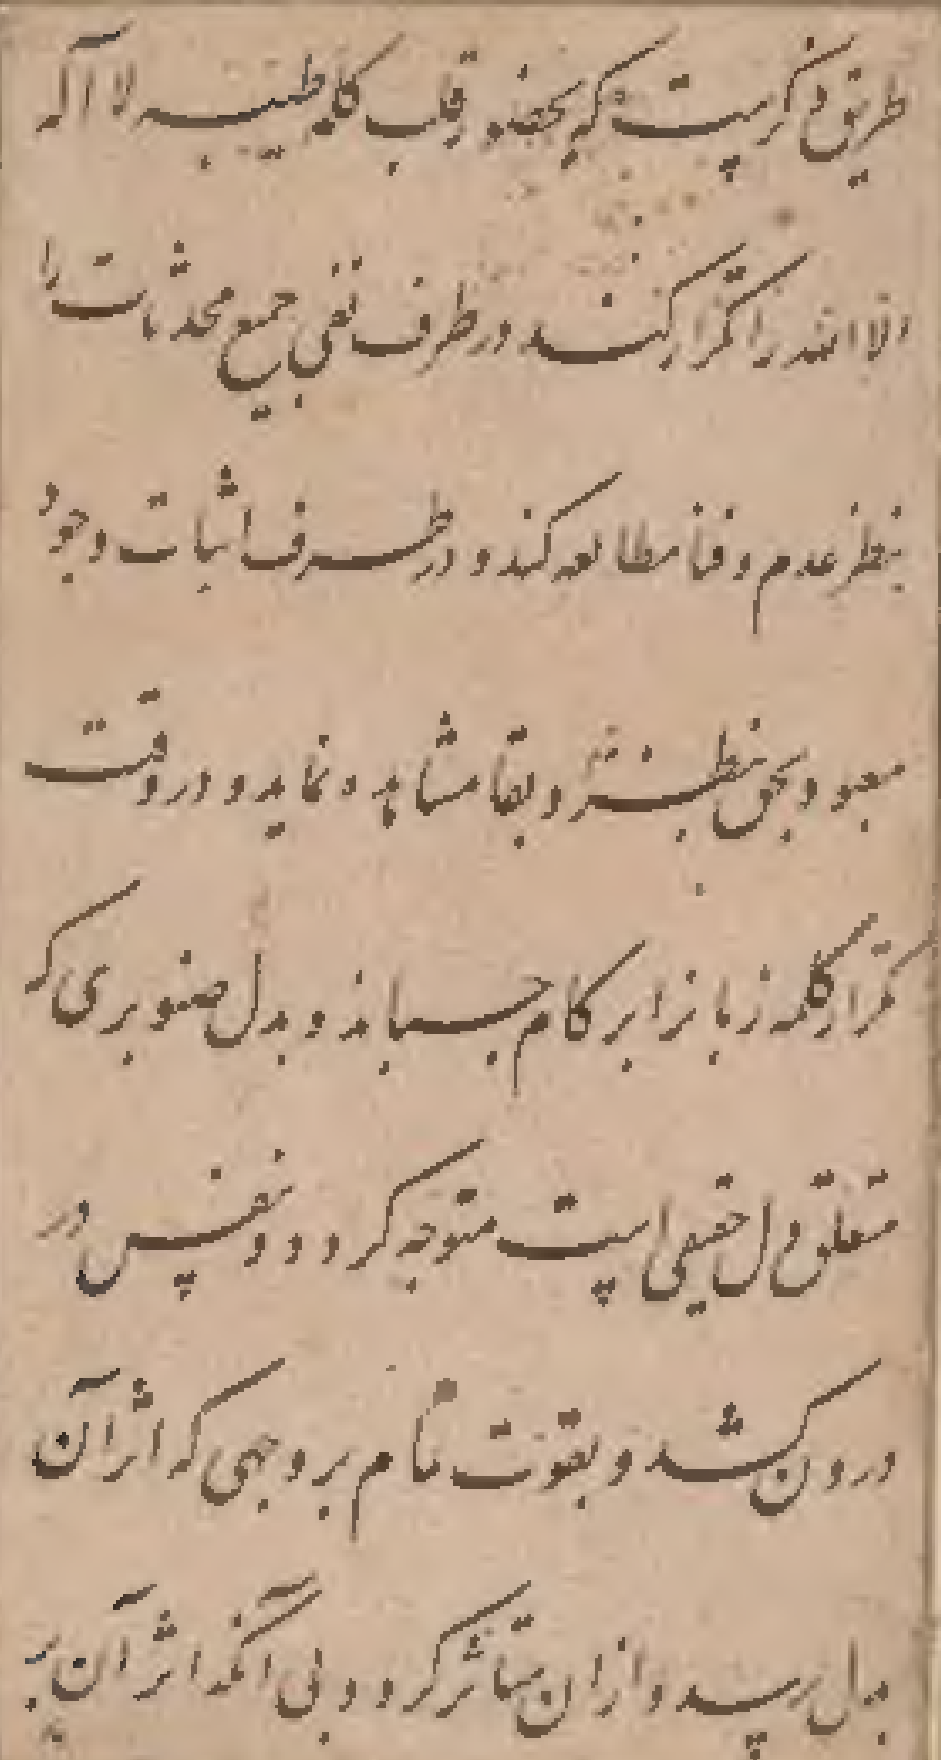 طریق ذکریست که بحضور قلب کلمه طیبه لا اله
الا الله را تکرار کنند در طرف نفی جمیع محدثات را
بنظر عدم و فنا مطالعه کند و در طرف اثبات وجود
معبود بحق بنظر و بقا مشاهده نماید و در وقت
تکرار کلمه زبانرا بر کام چسباند و بدل صنوبری که
متعلق دل حقیقی است متوجه کردد و نفس در
درون کشد و بقوت تمام بر وجهی که اثر آن
بدل رسد و ازان متأثر کردد و بی آنکه اثر آن بر